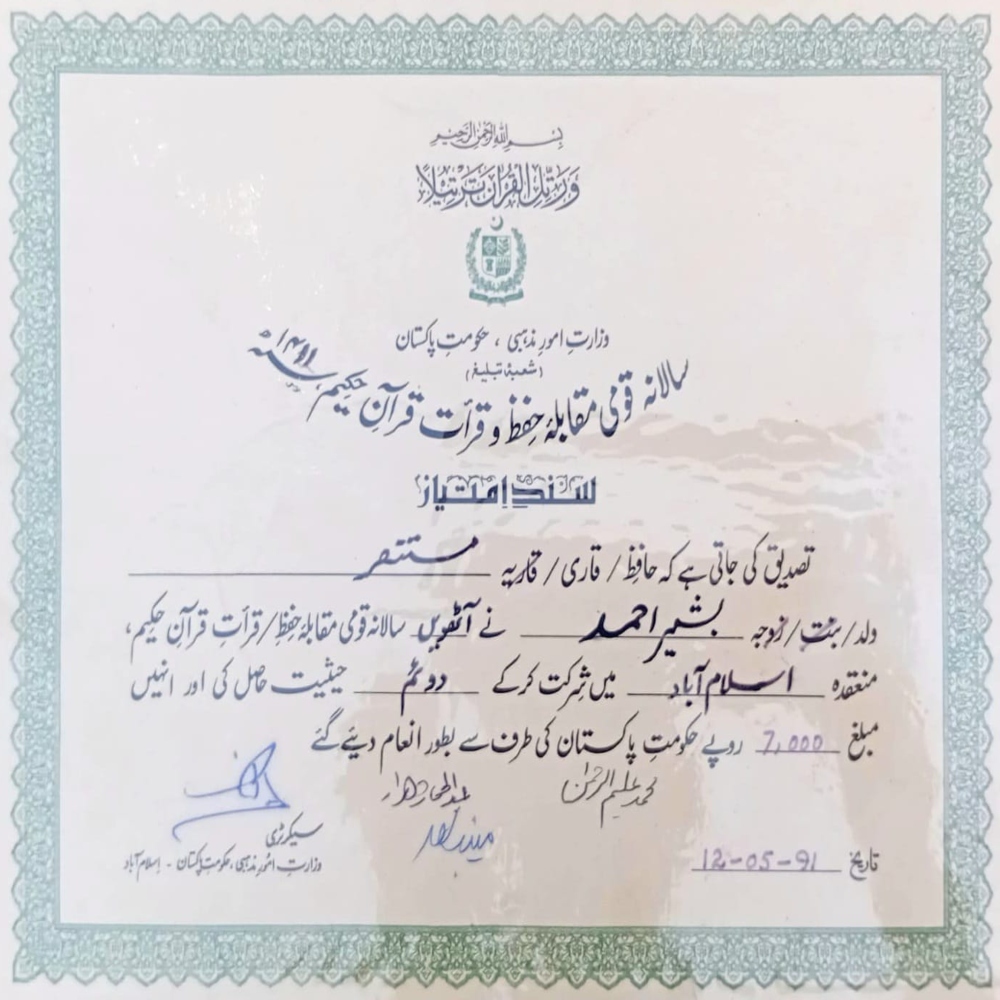 بسم اللہ الرحمن الرحیم
وَرَتِّلِ الْقُرْآنَ تَرْتِیْلًا
وزارتِ امورِ مذہبی ، حکومتِ پاکستان
(شعبۂ تبلیغ)
سالانہ قومی مقابلۂ حفظ و قرأت قرآنِ حکیم، سنہ ۱۴۱۱ھ
سندِ امتیاز
تصدیق کی جاتی ہے کہ حافظ / قاری / قاریہ
ولد / بنت / زوجہ بشیر احمد نے آٹھویں سالانہ قومی مقابلۂ حفظ/قرأتِ قرآنِ حکیم،
منعقدہ اسلام آباد میں شرکت کرکے دوئم حیثیت حاصل کی اور انہیں
مبلغ 7,000 روپے حکومتِ پاکستان کی طرف سے بطور انعام دیئے گئے
محمد علیم الرحمٰن
سیکرٹری
وزارتِ امُورِ مذہبی، حکومتِ پاکستان - اسلام آباد
تاریخ 12-05-91